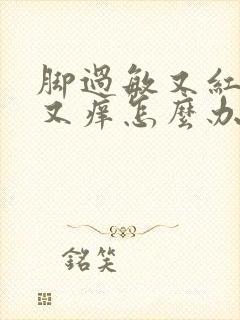 脚過敏又紅
又痒怎麼办
銘笑